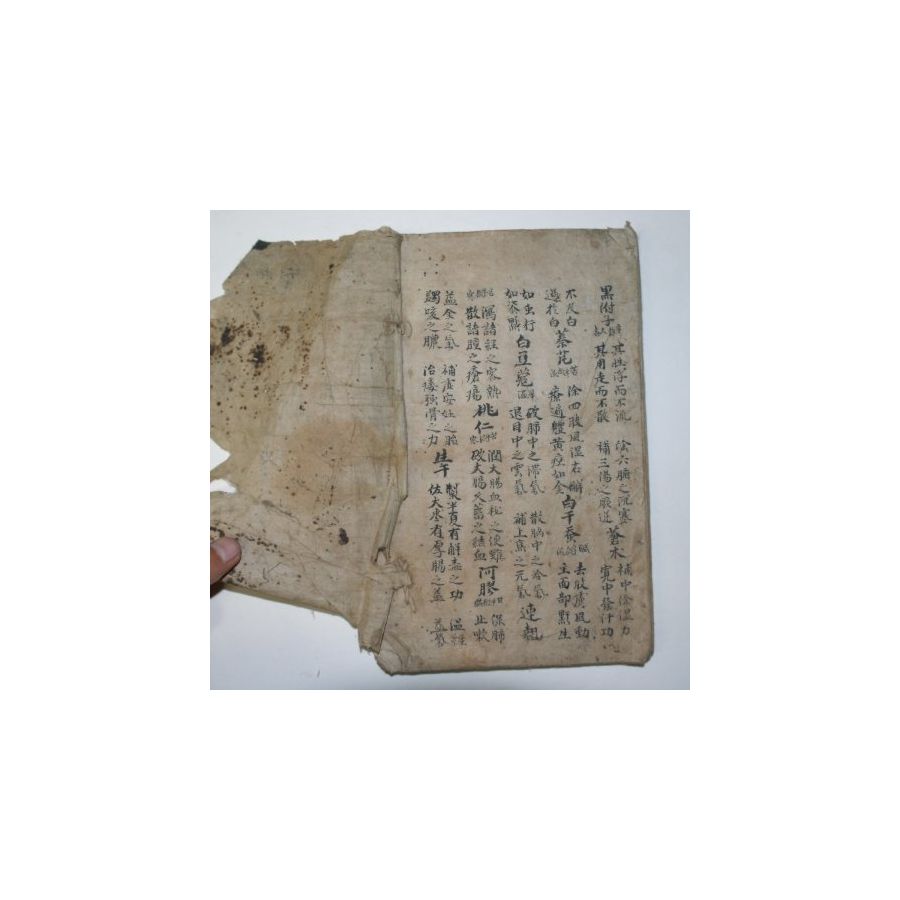 黑附子 其性浮而不沉 除六腑之沉寒 蒼朮 補中除湿力
其用走而不散 補三陽之厥逆 寬中發汗功
不及白 蓁芃 除四肢風湿若懈 白干蚕 去皮膚風動
過於白 療遍體黃疸如金 主面部點生
如虫行 白豆蔲 破肺中之滞氣 散胸中之冷氣 連翹
如漆點 退目中之雲氣 補上焦之元氣
瀉諸経之客熱 桃仁 潤大腸血秘之便難 阿膠 保肺
散諸腫之瘡瘍 破大腸久蓄之結血 止嗽
益金之氣 補虛安妊之胎 生干 製半夏有解毒之功 温経
蠲咳之膿 治痿强骨之力 佐大枣有厚腸之益 益氣